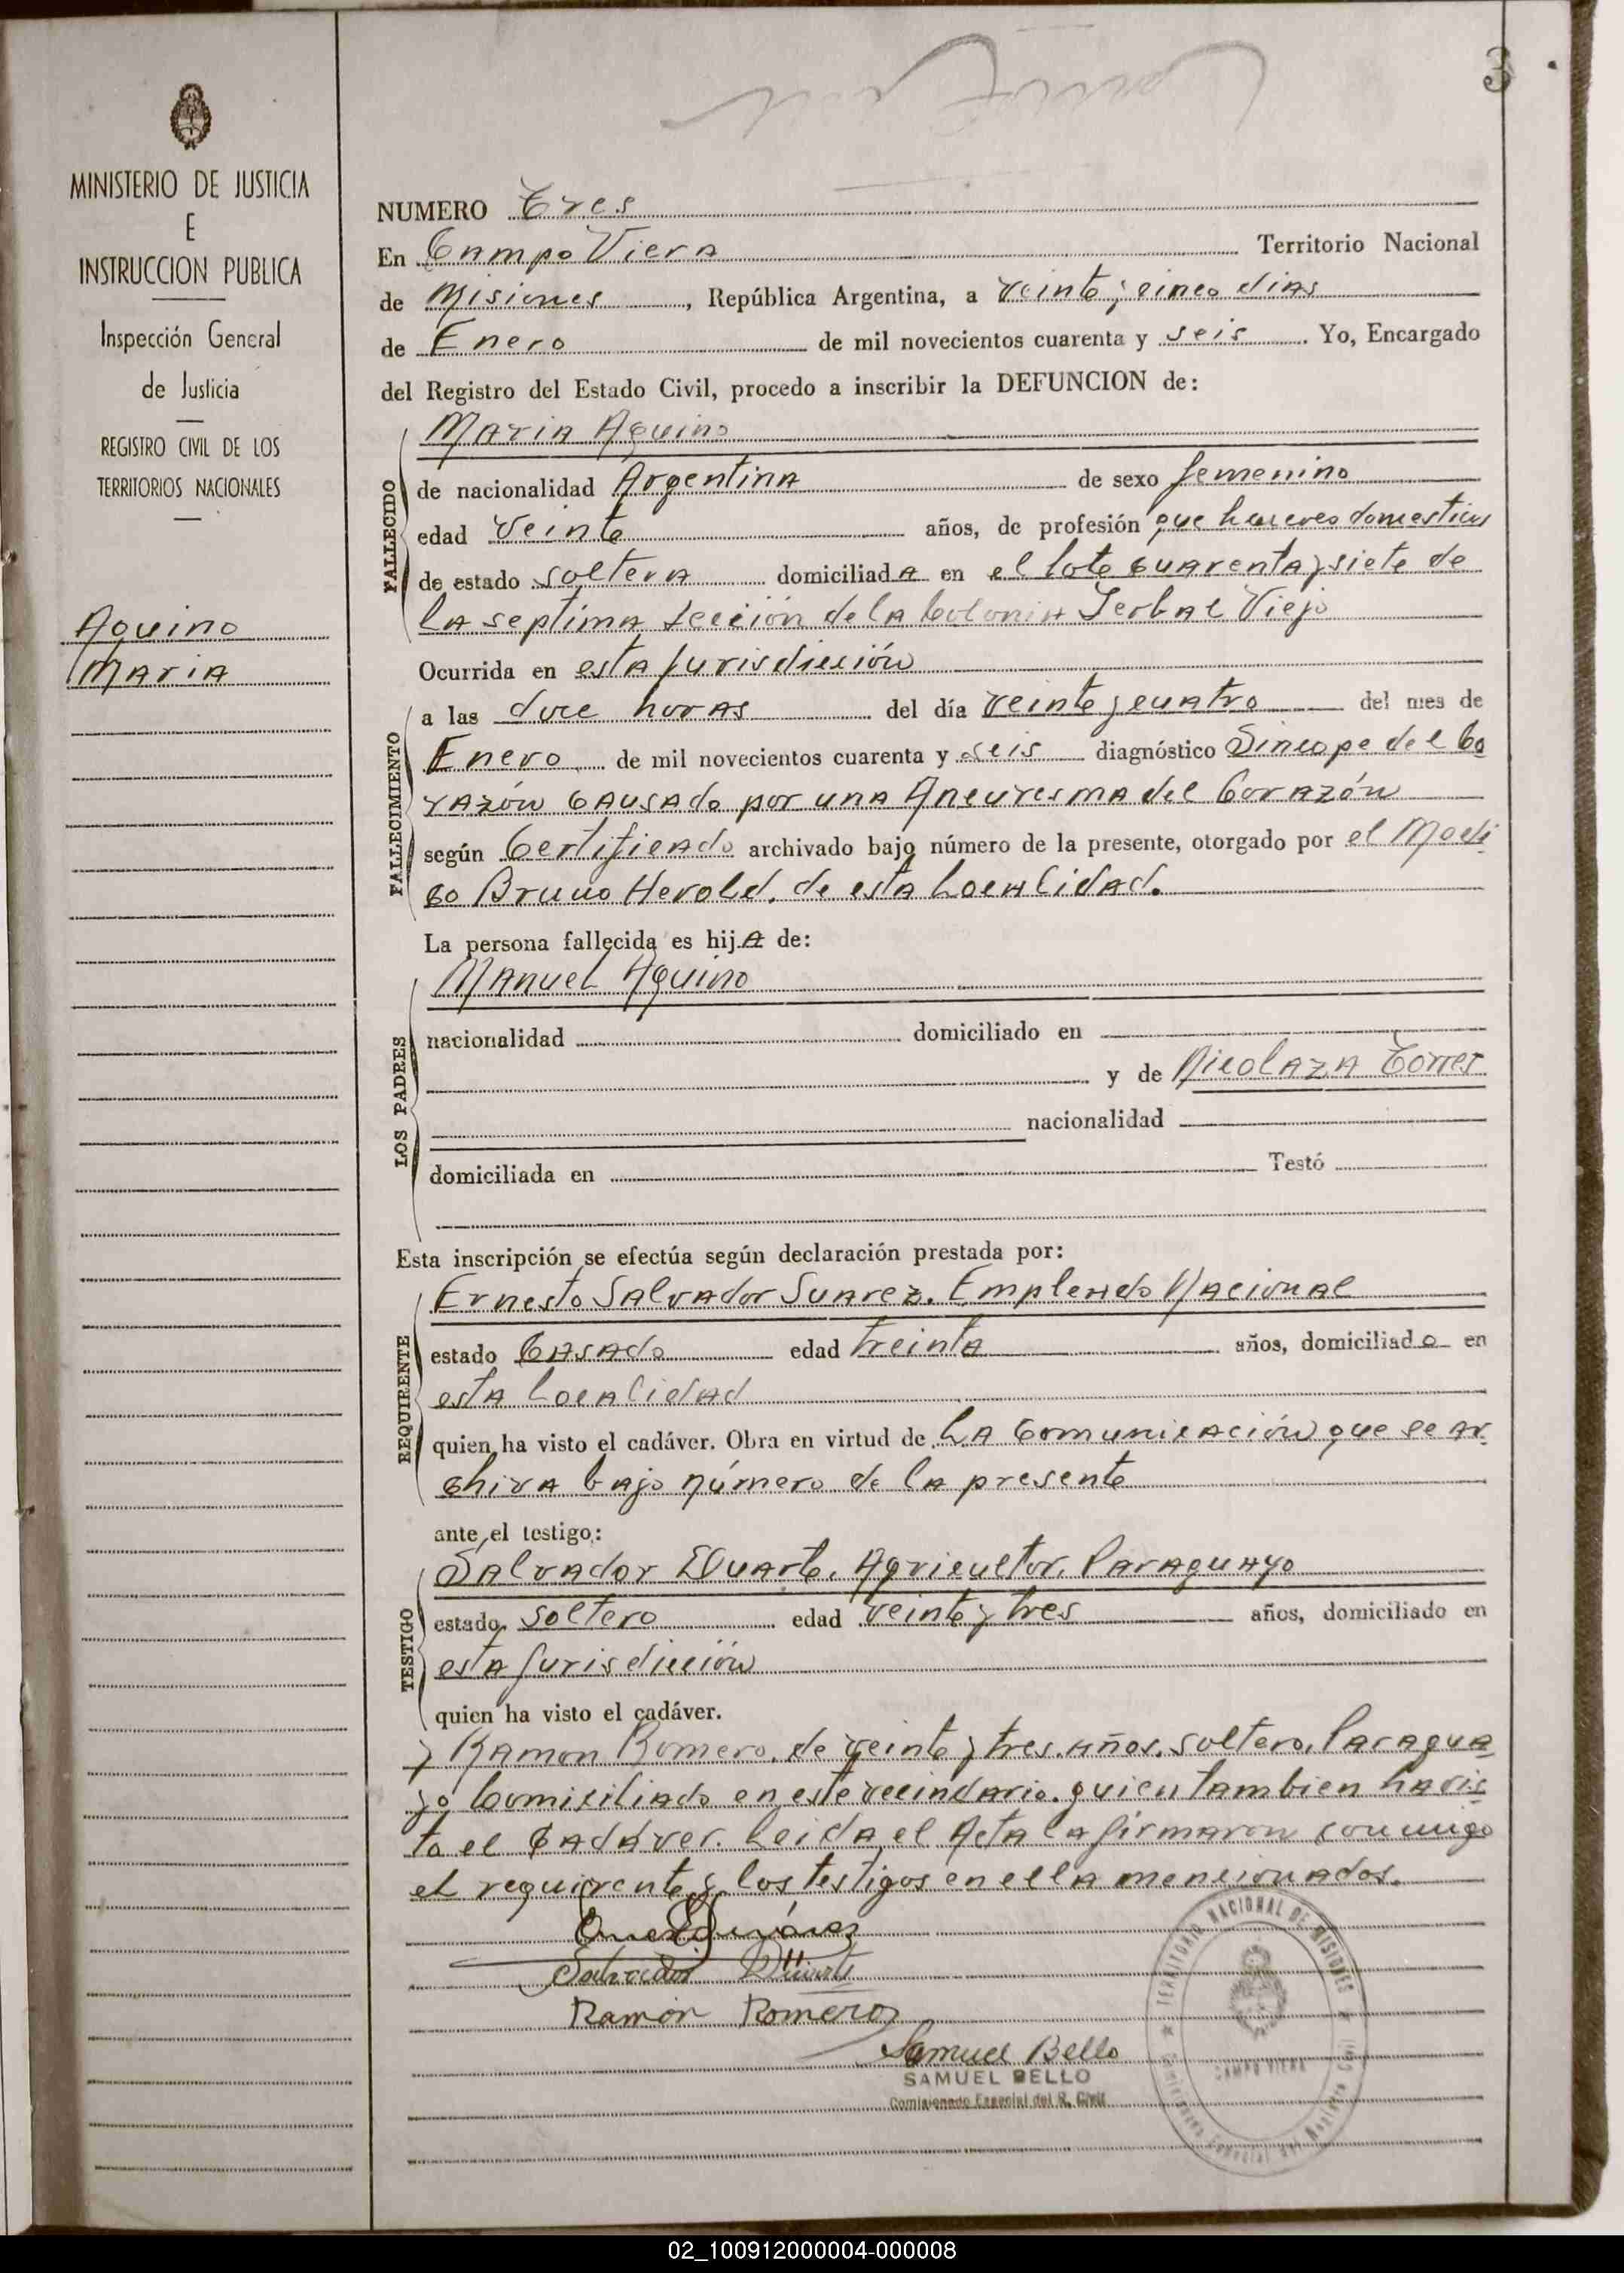 3
MINISTERIO DE JUSTICIA
E
INSTRUCCION PUBLICA
Inspección General
de Justicia
REGISTRO CIVIL DE LOS
TERRITORIOS NACIONALES
Aquino
Maria
NUMERO Tres
En Campo Viera Territorio Nacional
de Misiones, República Argentina, a veinte y cinco dias
de Enero de mil novecientos cuarenta y seis. Yo, Encargado
del Registro del Estado Civil, procedo a inscribir la DEFUNCION de:
Maria Aquino
FALLECIDO
de nacionalidad Argentina de sexo femenino
edad veinte años, de profesión que haceres domesticos
de estado soltera domiciliada en el lote cuarenta y siete de
la septima sección de la Colonia Yerbal Viejo
Ocurrida en esta jurisdicción
FALLECIMIENTO
a las doce horas del día veinte y cuatro del mes de
Enero de mil novecientos cuarenta y seis diagnóstico Sincope del Co
razón causado por una Aneuresma del Corazón
según Certificado archivado bajo número de la presente, otorgado por el Medi
co Bruno Herold, de esta Localidad.
La persona fallecida es hija de:
Manuel Aquino
LOS PADRES
nacionalidad domiciliado en
y de Nicolaza Torres
nacionalidad
domiciliada en Testó
Esta inscripción se efectúa según declaración prestada por:
Ernesto Salvador Suarez. Empleado Nacional
REQUIRENTE
estado Casado edad treinta años, domiciliado en
esta Localidad
quien ha visto el cadáver. Obra en virtud de La Comunicación que se ar
chiva bajo número de la presente
ante el testigo:
Salvador Duarte, Agricultor, Paraguayo
TESTIGO
estado soltero edad veinte y tres años, domiciliado en
esta jurisdicción
quien ha visto el cadáver.
y Ramon Romero, de veinte y tres años, soltero, Paragua
yo Domiciliado en este vecindario. quien tambien ha vis
to el Cadáver. Leida el Acta la firmaron conmigo
el requirente y los testigos en ella mencionados.
Salvador Duarte
Ramón Romero
Samuel Bello
SAMUEL BELLO
Comisionado Especial del R. Civil
TERRITORIO NACIONAL DE MISIONES
CAMPO VIERA
02_100912000004-000008